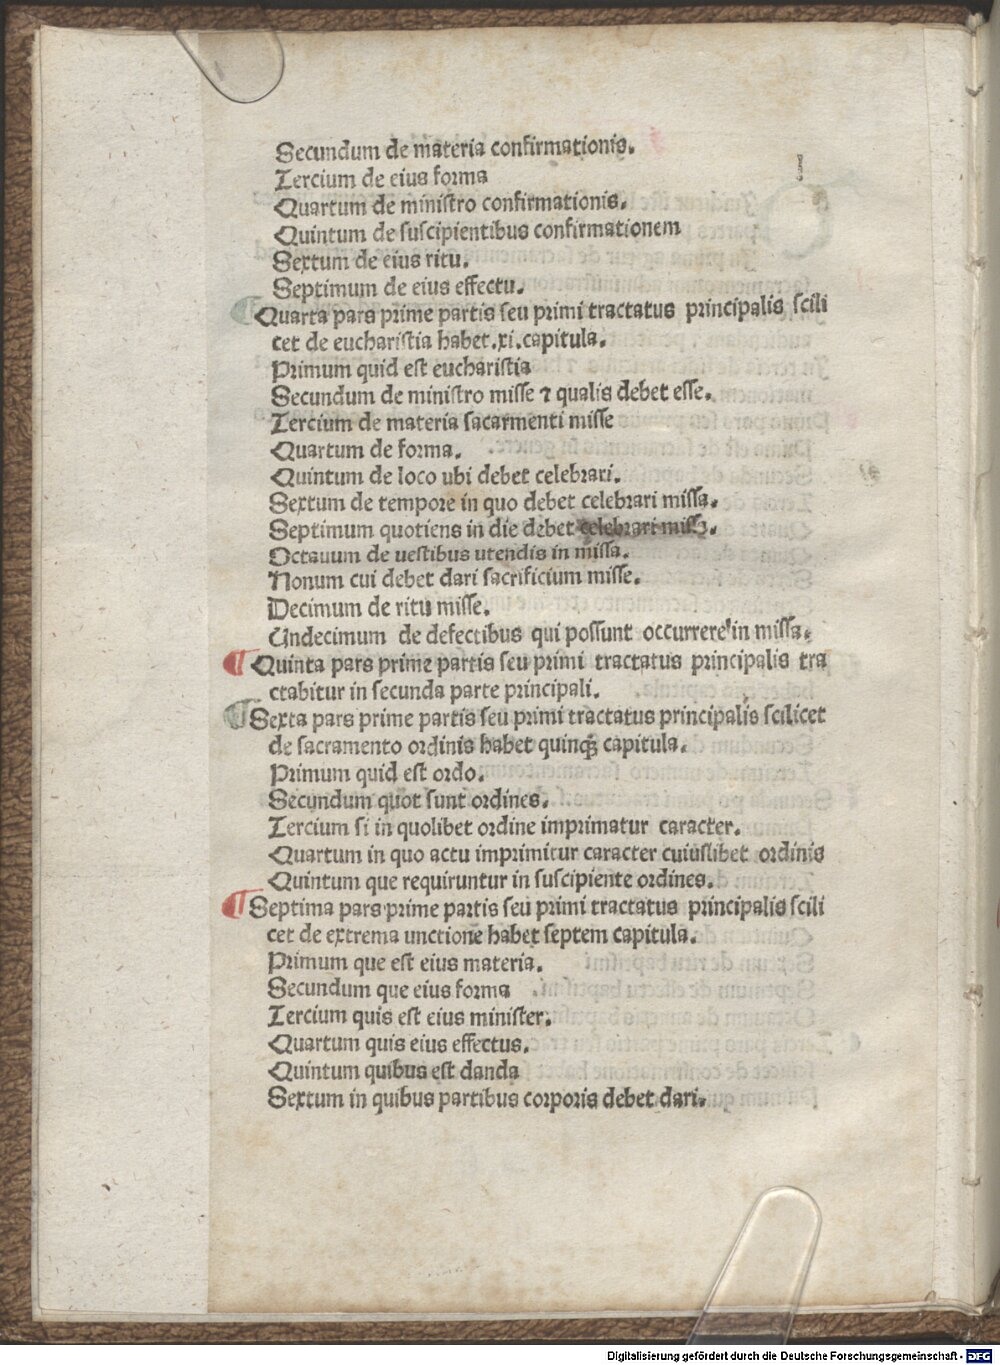 Secundum de materia confirmationis.
Tercium de eius forma
Quartum de ministro confirmationis.
Quintum de suscipientibus confirmationem
Sextum de eius ritu.
Septimum de eius effectu.
¶ Quarta pars prime partis seu primi tractatus principalis scili
cet de eucharistia habet .xi. capitula.
Primum quid est eucharistia
Secundum de ministro misse ⁊ qualis debet esse.
Tercium de materia sacarmenti misse
Quartum de forma.
Quintum de loco ubi debet celebrari.
Sextum de tempore in quo debet celebrari missa.
Septimum quotiens in die debet celebrari missa.
Octauum de uestibus utendis in missa.
Nonum cui debet dari sacrificium misse.
Decimum de ritu misse.
Undecimum de defectibus qui possunt occurrere in missa.
¶ Quinta pars prime partis seu primi tractatus principalis tra
ctabitur in secunda parte principali.
¶ Sexta pars prime partis seu primi tractatus principalis scilicet
de sacramento ordinis habet quinqꝫ capitula.
Primum quid est ordo.
Secundum quot sunt ordines.
Tercium si in quolibet ordine imprimatur caracter.
Quartum in quo actu imprimitur caracter cuiuslibet ordinis
Quintum que requiruntur in suscipiente ordines.
¶ Septima pars prime partis seu primi tractatus principalis scili
cet de extrema unctione habet septem capitula.
Primum que est eius materia.
Secundum que eius forma
Tercium quis est eius minister.
Quartum quis eius effectus.
Quintum quibus est danda
Sextum in quibus partibus corporis debet dari.
Digitalisierung gefördert durch die Deutsche Forschungsgemeinschaft - DFG